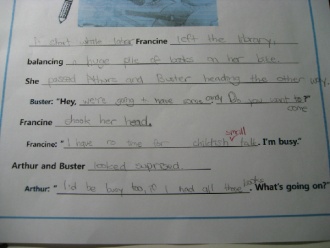 A short time later Francine left the library,
balancing a huge pile of books on her
She passed Arthur and Buster heading the other way.
Buster: "Hey, we're going to have some Do you want to come
Francine shook her head.
Francine: "I have no time for childish small talk. I'm busy."
Arthur and Buster looked suprised.
Arthur: "I'd be busy too, if I had all those books. What's going on?"